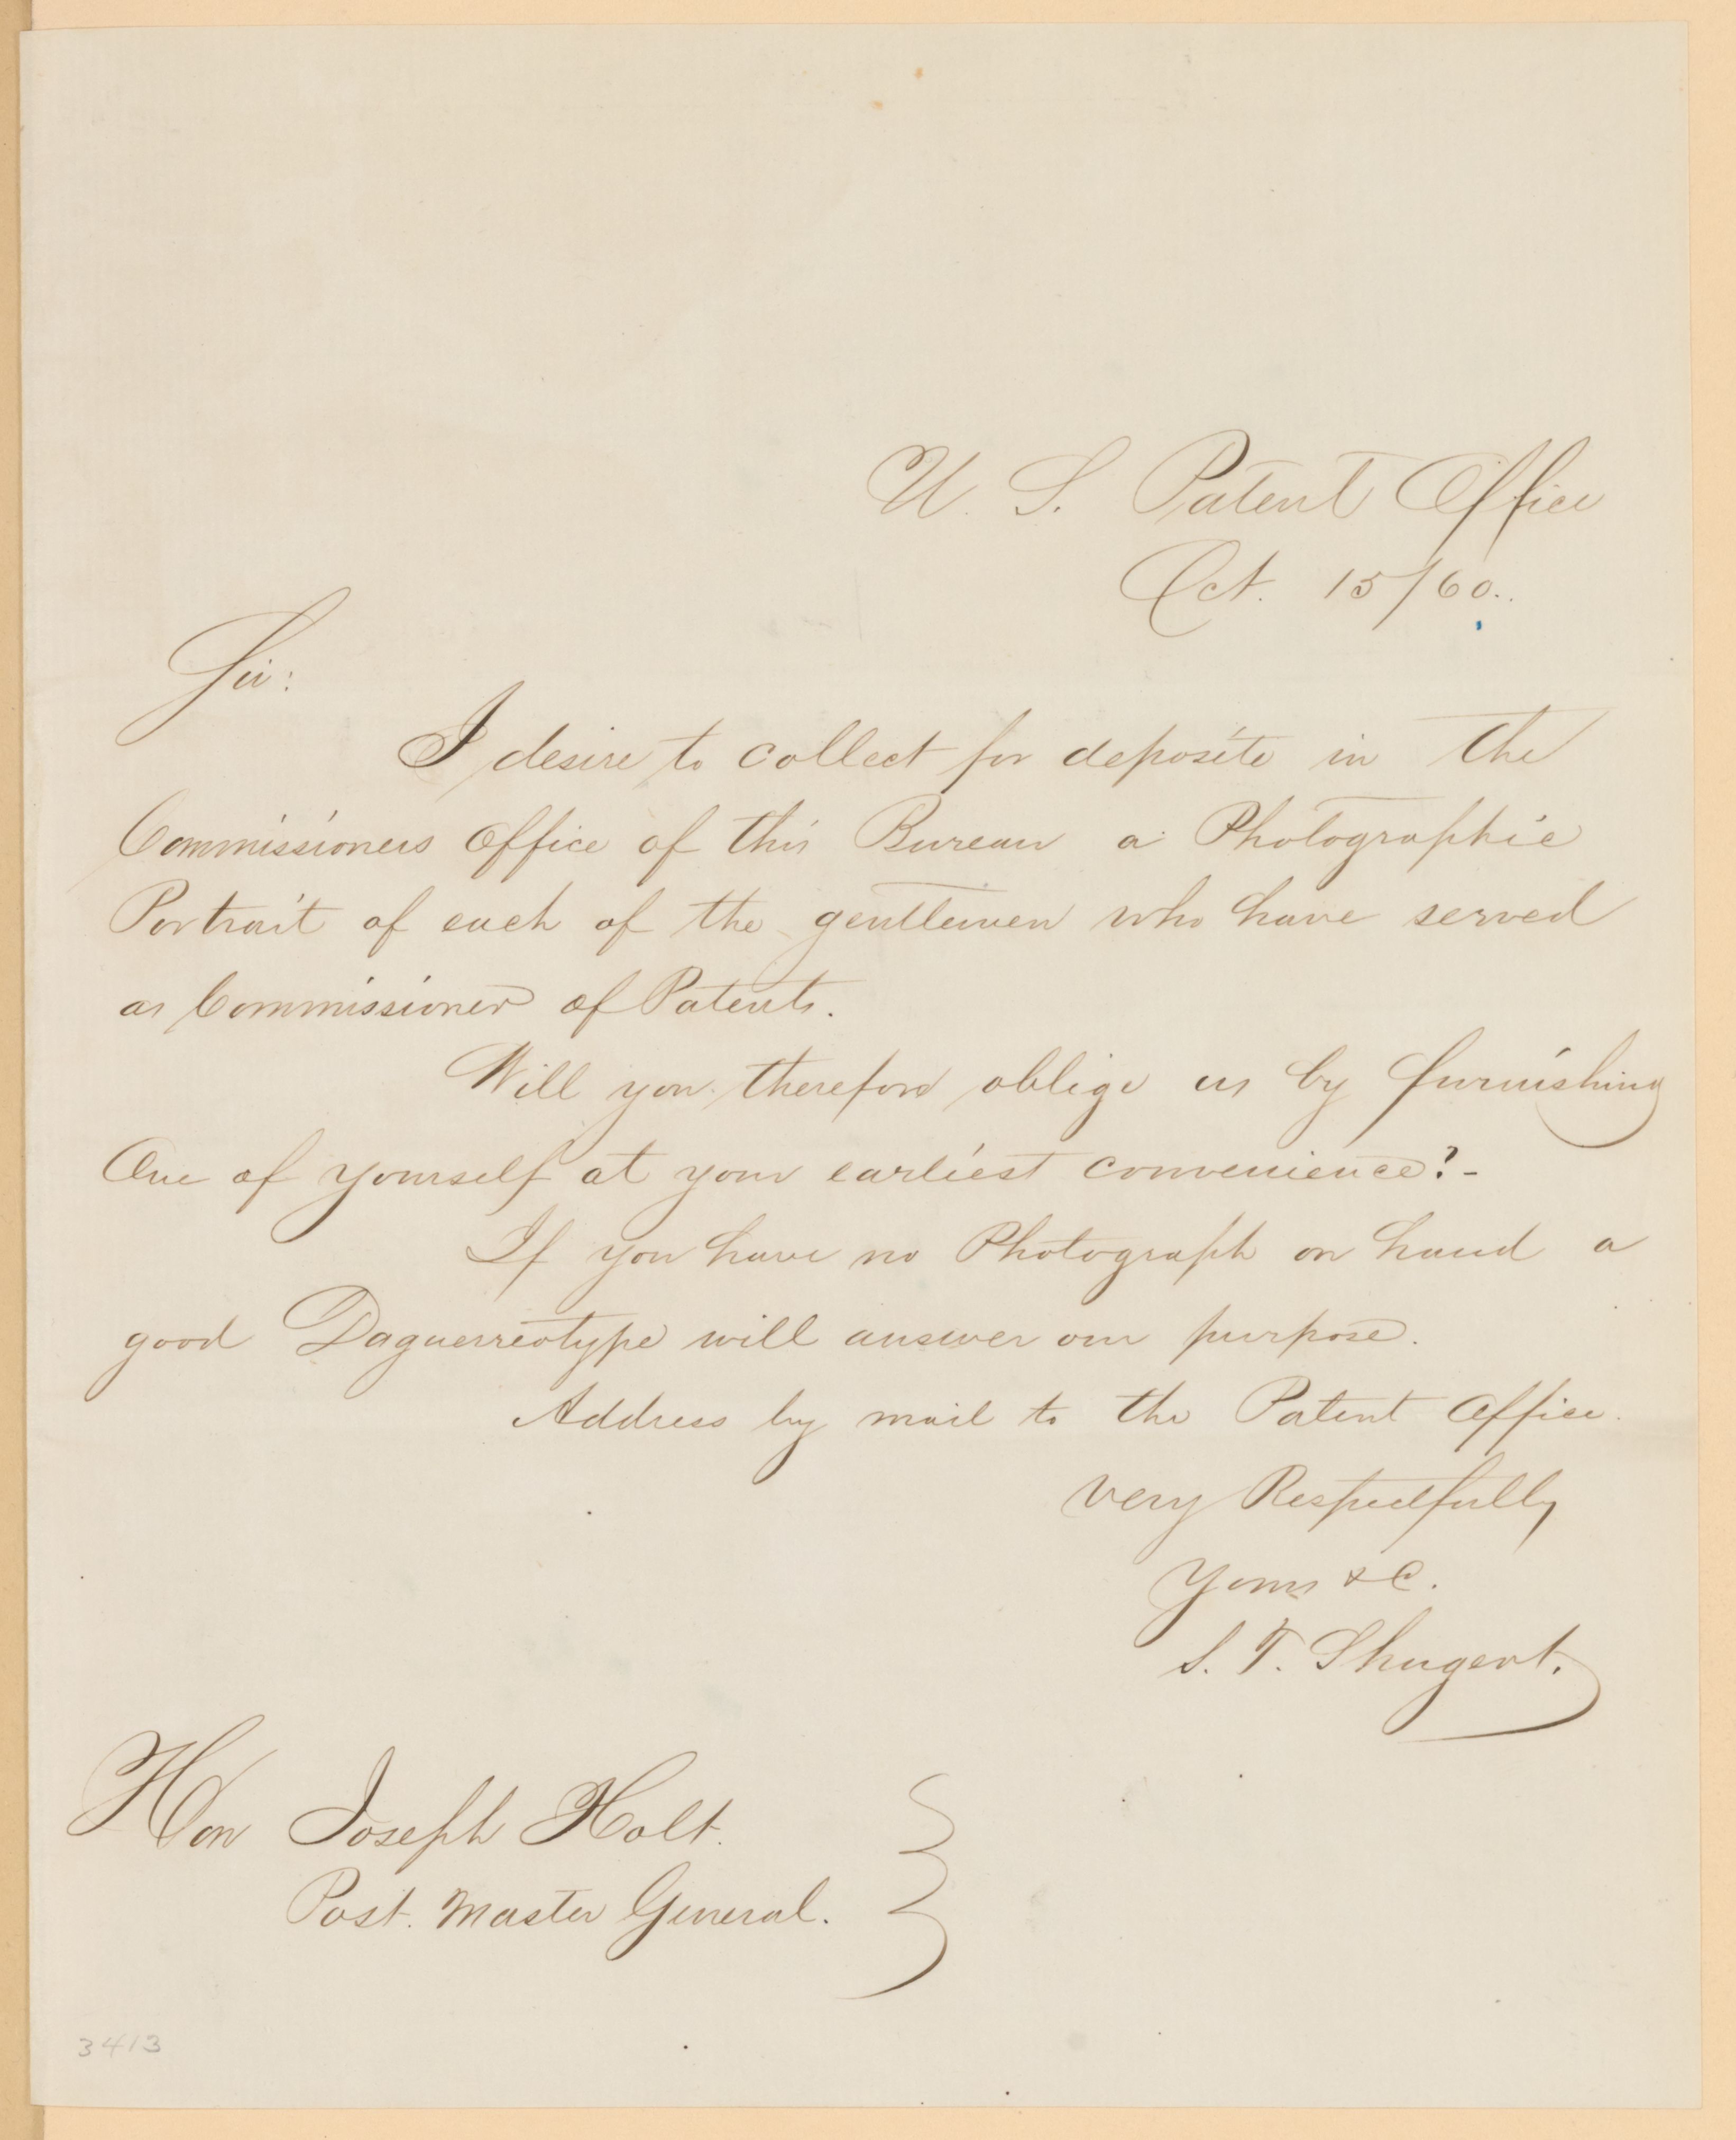 U. S. Patent Office
Oct. 15/60.
Sir:
I desire to collect for deposite in the
Commissioners Office of this Bureau a Photographic
Portrait of each of the gentlemen who have served
as Commissioner of Patents.
Will you therefore oblige us by furnishing
One of yourself at your earliest convenience?-
If you have no Photograph on hand a
good Daguerreotype will answer our purpose.
Address by mail to the Patent Office.
Very Respectfully
Yours &C.
S. T. Shugert.
Hon Joseph Holt.
Post. Master General.
3413